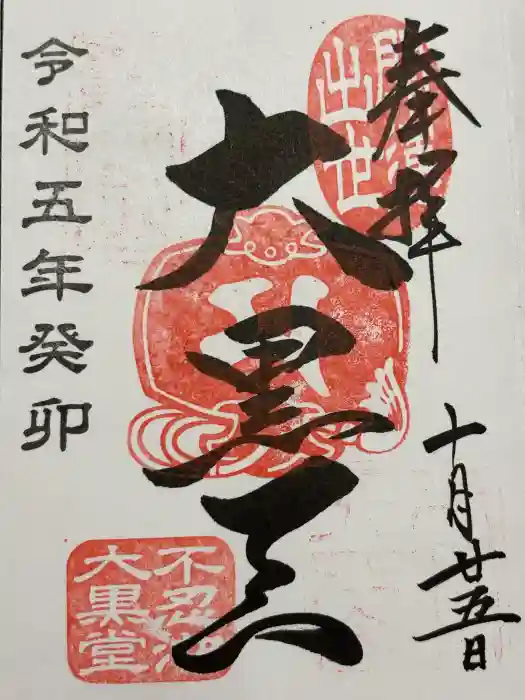 奉拝
十月廿五日
大黒天
令和五年癸卯
不忍池
大黒堂